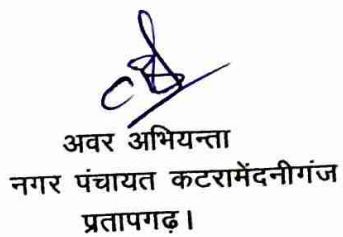 अवर अभियन्ता
नगर पंचायत कटरामेंदनीगंज
प्रतापगढ़।